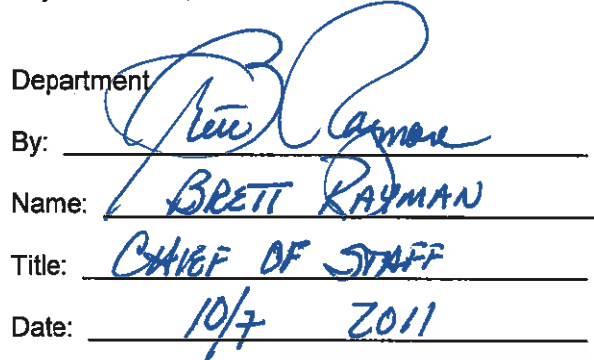 Department
By:
Name: BRETT RAYMAN
Title: CHIEF OF STAFF
Date: 10/7 2011